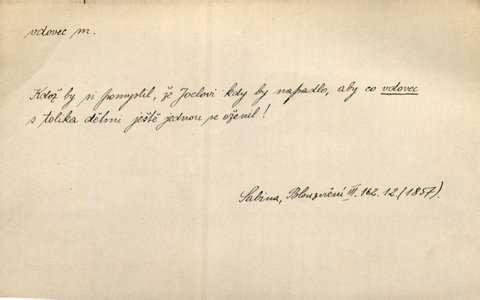 vdovec m.
Kdož by si pomyslil, že Joelovi kdy by napadlo, aby co vdovec
s tolika dětmi ještě jednou se oženil!
Sabina, Blouznění III. 162. 12. (1857).